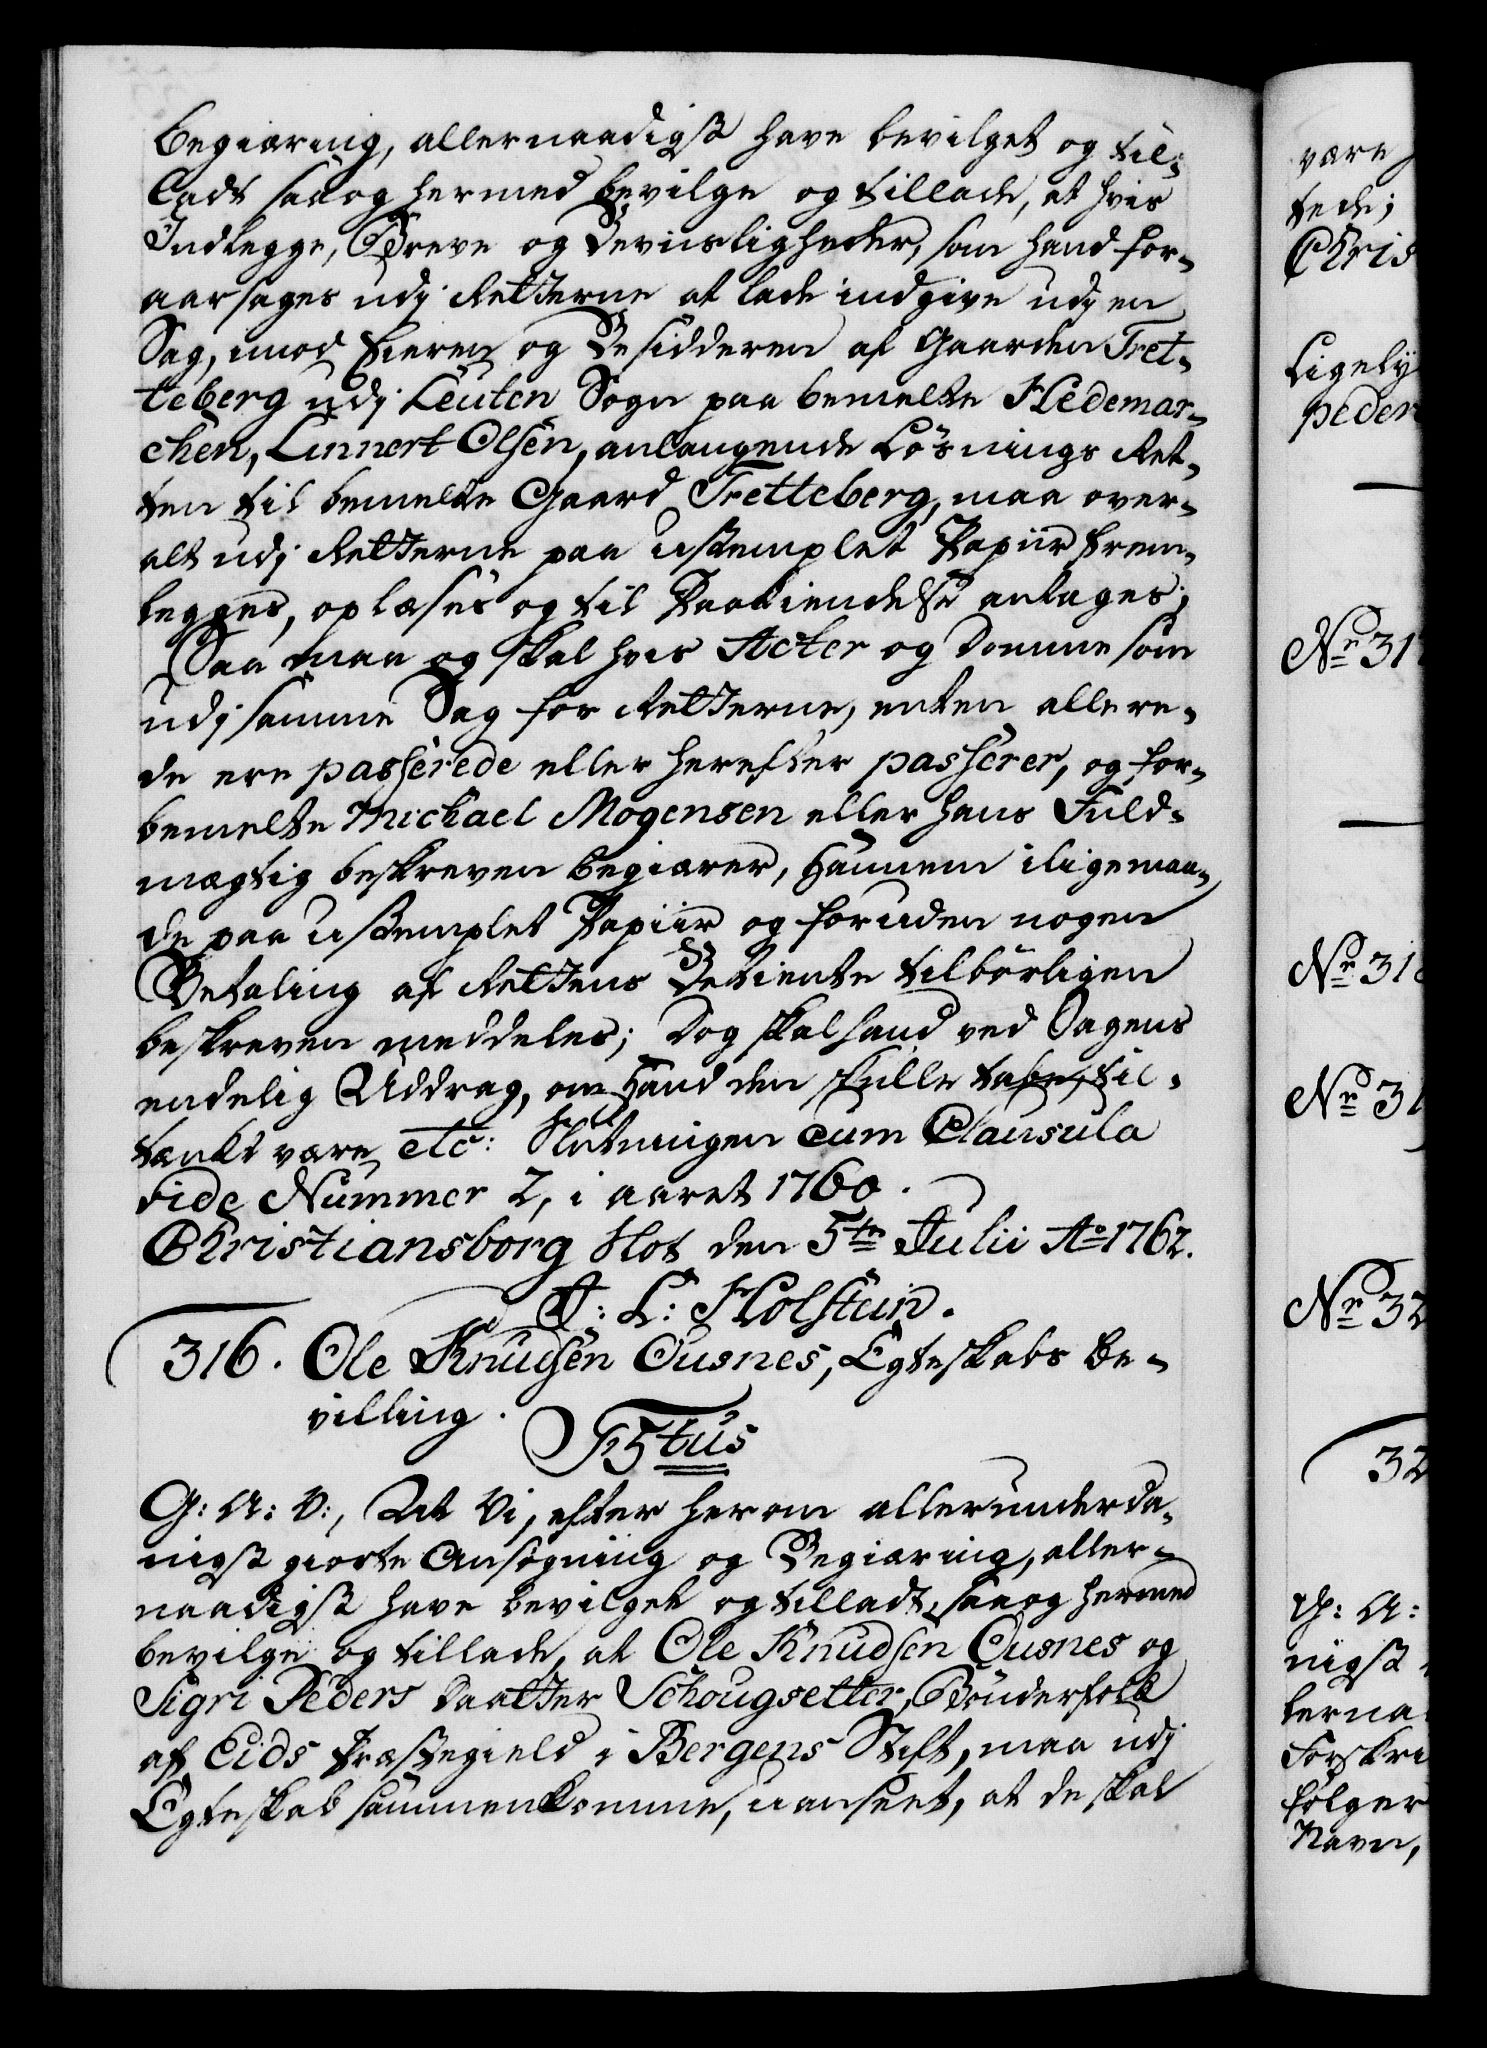 Begiæring, allernaadigst have bevilget og til-
ladt saa og hermed bevilge og tillade, at hvis
Indlegge, Breve og Beviisligheder, som hand for-
aarsages udj Retterne at lade indgive udj en
Sag, imod Eieren og Besidderen af Gaarden Tret-
teberg udj Leuten Sogn paa bemelte Hedemar-
chen, Linnert Olsen, anlangende Løsnings Ret-
ten til bemelte Gaard Tretteberg, maa over-
alt udj Retterne paa ustemplet Papiir frem-
legges, oplæses og til Paakiendelse antages;
Saa maa og skal hvis Acter og Domme som
udj samme Sag for Retterne, enten allere-
de ere passerede eller herefter passerer, og for-
bemelte Michael Mogensen eller hans Fuld-
mægtig beskreven begiærer, hannem iligemaa-
de paa ustemplet Papiir og foruden nogen
Betaling af Rettens Betiente tilbørligen
beskreven meddeles; Dog skal hand ved Sagens
endelig Uddrag, om hand den skulle tabe, til-
tænkt være etc: Slutningen cum Clausula
vide Nummer 2, i aaret 1760.
Christiansborg Slot den 5te Julii Ao 1762.
J: L: Holstein.
316. Ole Knudsen Ousnes, Egteskabs Be-
villing.
F5tus
G: A: V:, At Vi, efter herom allerunderda-
nigst giorte Ansøgning og Begiæring, aller-
naadigst have bevilget og tilladt, saa og hermed
bevilge og tillade, at Ole Knudsen Ousnes og
Sigri Peders Daatter Schougsetter, Bønderfolk
af Eids Præstegield i Bergens Stift, maa udj
Egteskab sammenkomme, uanseet, at de skal
være
tede;
Chris
Ligely
peder
No 317
No 318
No 31
No 32
32
G: A:
nigst
lerna
Forskri
følger
Navn,